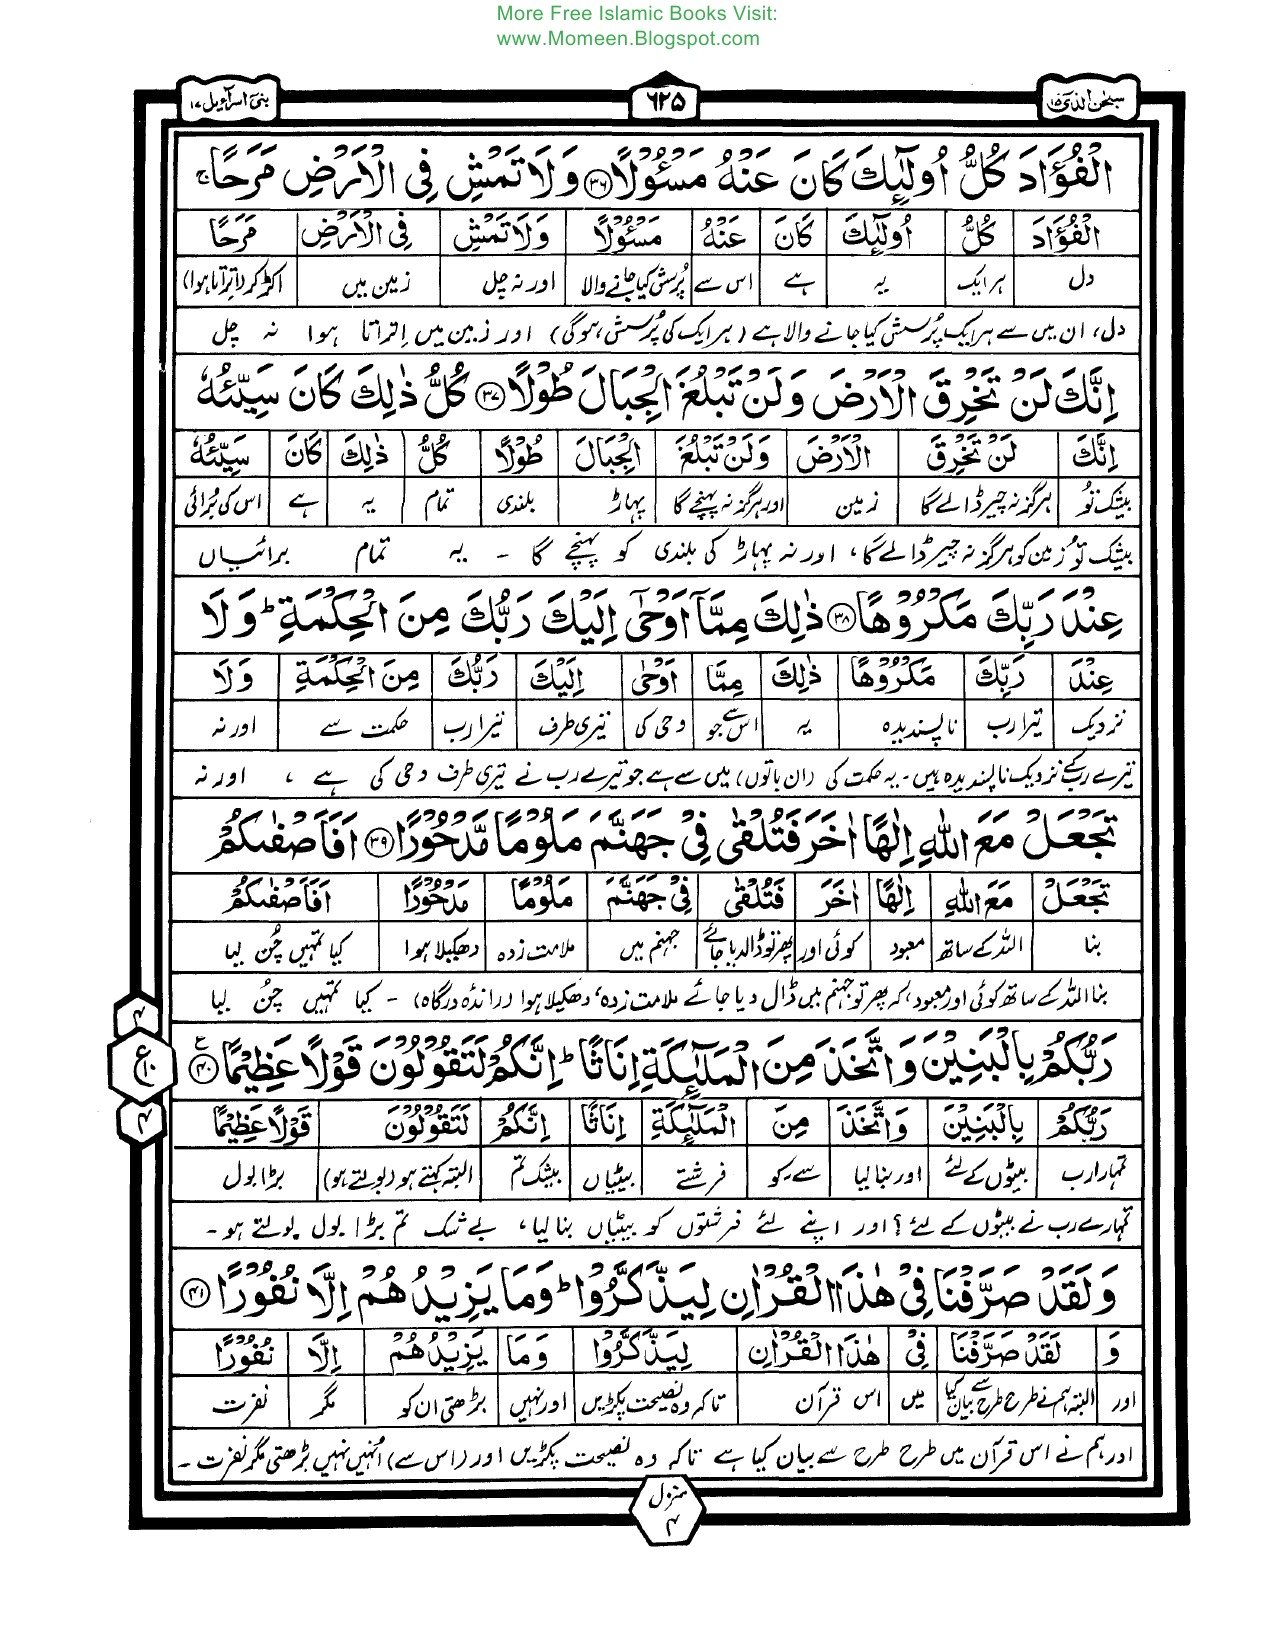 More Free Islamic Books Visit:
www.Momeen.Blogspot.com
سبحن الذی ۱۵
۶۲۵
بنی اسرآءیل ۱۷
الْفُؤَادَ كُلُّ اُولٰٓئِكَ كَانَ عَنْهُ مَسْـُٔوْلًا ۳۶ وَلَا تَمْشِ فِی الْاَرْضِ مَرَحًا ۚ
الْفُؤَادَ كُلُّ اُولٰٓئِكَ كَانَ عَنْهُ مَسْـُٔوْلًا وَلَا تَمْشِ فِی الْاَرْضِ مَرَحًا
دل ہر ایک یہ ہے اس سے پُرسش کیا جانے والا اور نہ چل زمین میں اکڑ کر (اتراتا ہوا)
دل، ان میں سے ہر ایک پُرسش کیا جانے والا ہے (ہر ایک کی پُرسش ہوگی) اور زمین میں اِتراتا ہوا نہ چل
اِنَّكَ لَنْ تَخْرِقَ الْاَرْضَ وَلَنْ تَبْلُغَ الْجِبَالَ طُوْلًا ۳۷ كُلُّ ذٰلِكَ كَانَ سَیِّئُهٗ
اِنَّكَ لَنْ تَخْرِقَ الْاَرْضَ وَلَنْ تَبْلُغَ الْجِبَالَ طُوْلًا كُلُّ ذٰلِكَ كَانَ سَیِّئُهٗ
بیشک تُو ہرگز نہ چیر ڈالے گا زمین اور ہرگز نہ پہنچے گا پہاڑ بلندی تمام یہ ہے اس کی بُرائی
بیشک تُو زمین کو ہرگز نہ چیر ڈالے گا، اور نہ پہاڑ کی بلندی کو پہنچے گا - یہ تمام برائیاں
عِنْدَ رَبِّكَ مَكْرُوْهًا ۳۸ ذٰلِكَ مِمَّاۤ اَوْحٰۤی اِلَیْكَ رَبُّكَ مِنَ الْحِكْمَةِ ؕ وَلَا
عِنْدَ رَبِّكَ مَكْرُوْهًا ذٰلِكَ مِمَّا اَوْحٰۤی اِلَیْكَ رَبُّكَ مِنَ الْحِكْمَةِ وَلَا
نزدیک تیرا رب ناپسندیدہ یہ اس سے جو وحی کی تیری طرف تیرا رب حکمت سے اور نہ
تیرے رب کے نزدیک ناپسندیدہ ہیں - یہ حکمت کی (ان باتوں) میں سے ہے جو تیرے رب نے تیری طرف وحی کی ہے ، اور نہ
تَجْعَلْ مَعَ اللّٰهِ اِلٰهًا اٰخَرَ فَتُلْقٰی فِیْ جَهَنَّمَ مَلُوْمًا مَّدْحُوْرًا ۳۹ اَفَاَصْفٰىكُمْ
تَجْعَلْ مَعَ اللّٰهِ اِلٰهًا اٰخَرَ فَتُلْقٰی فِیْ جَهَنَّمَ مَلُوْمًا مَدْحُوْرًا اَفَاَصْفٰىكُمْ
بنا اللہ کے ساتھ معبود کوئی اور پھر تو ڈال دیا جائے جہنم میں ملامت زدہ دھکیلا ہوا کیا تمہیں چُن لیا
بنا اللہ کے ساتھ کوئی اور معبود، کہ پھر تو جہنم میں ڈال دیا جائے ملامت زدہ، دھکیلا ہوا (راندہ درگاہ) - کیا تمہیں چُن لیا
۴
ع ۱۰
۴
رَبُّكُمْ بِالْبَنِیْنَ وَاتَّخَذَ مِنَ الْمَلٰٓئِكَةِ اِنَاثًا ؕ اِنَّكُمْ لَتَقُوْلُوْنَ قَوْلًا عَظِیْمًا ۴۰ ع
رَبُّكُمْ بِالْبَنِیْنَ وَاتَّخَذَ مِنَ الْمَلٰٓئِكَةِ اِنَاثًا اِنَّكُمْ لَتَقُوْلُوْنَ قَوْلًا عَظِیْمًا
تمہارا رب بیٹوں کے لئے اور بنا لیا سے - کو فرشتے بیٹیاں بیشک تم البتہ کہتے ہو (بولتے ہو) بڑا بول
تمہارے رب نے بیٹوں کے لئے؟ اور اپنے لئے فرشتوں کو بیٹیاں بنا لیا، بے شک تم بڑا بول بولتے ہو -
وَلَقَدْ صَرَّفْنَا فِیْ هٰذَا الْقُرْاٰنِ لِیَذَّكَّرُوْا ؕ وَمَا یَزِیْدُهُمْ اِلَّا نُفُوْرًا ۴۱
وَ لَقَدْ صَرَّفْنَا فِیْ هٰذَا الْقُرْاٰنِ لِیَذَّكَّرُوْا وَمَا یَزِیْدُهُمْ اِلَّا نُفُوْرًا
اور البتہ ہم نے طرح طرح سے بیان کیا میں اس قرآن تاکہ وہ نصیحت پکڑیں اور نہیں بڑھتی ان کو مگر نفرت
اور ہم نے اس قرآن میں طرح طرح سے بیان کیا ہے تاکہ وہ نصیحت پکڑیں اور (اس سے) اُنہیں نہیں بڑھتی مگر نفرت -
منزل ۴